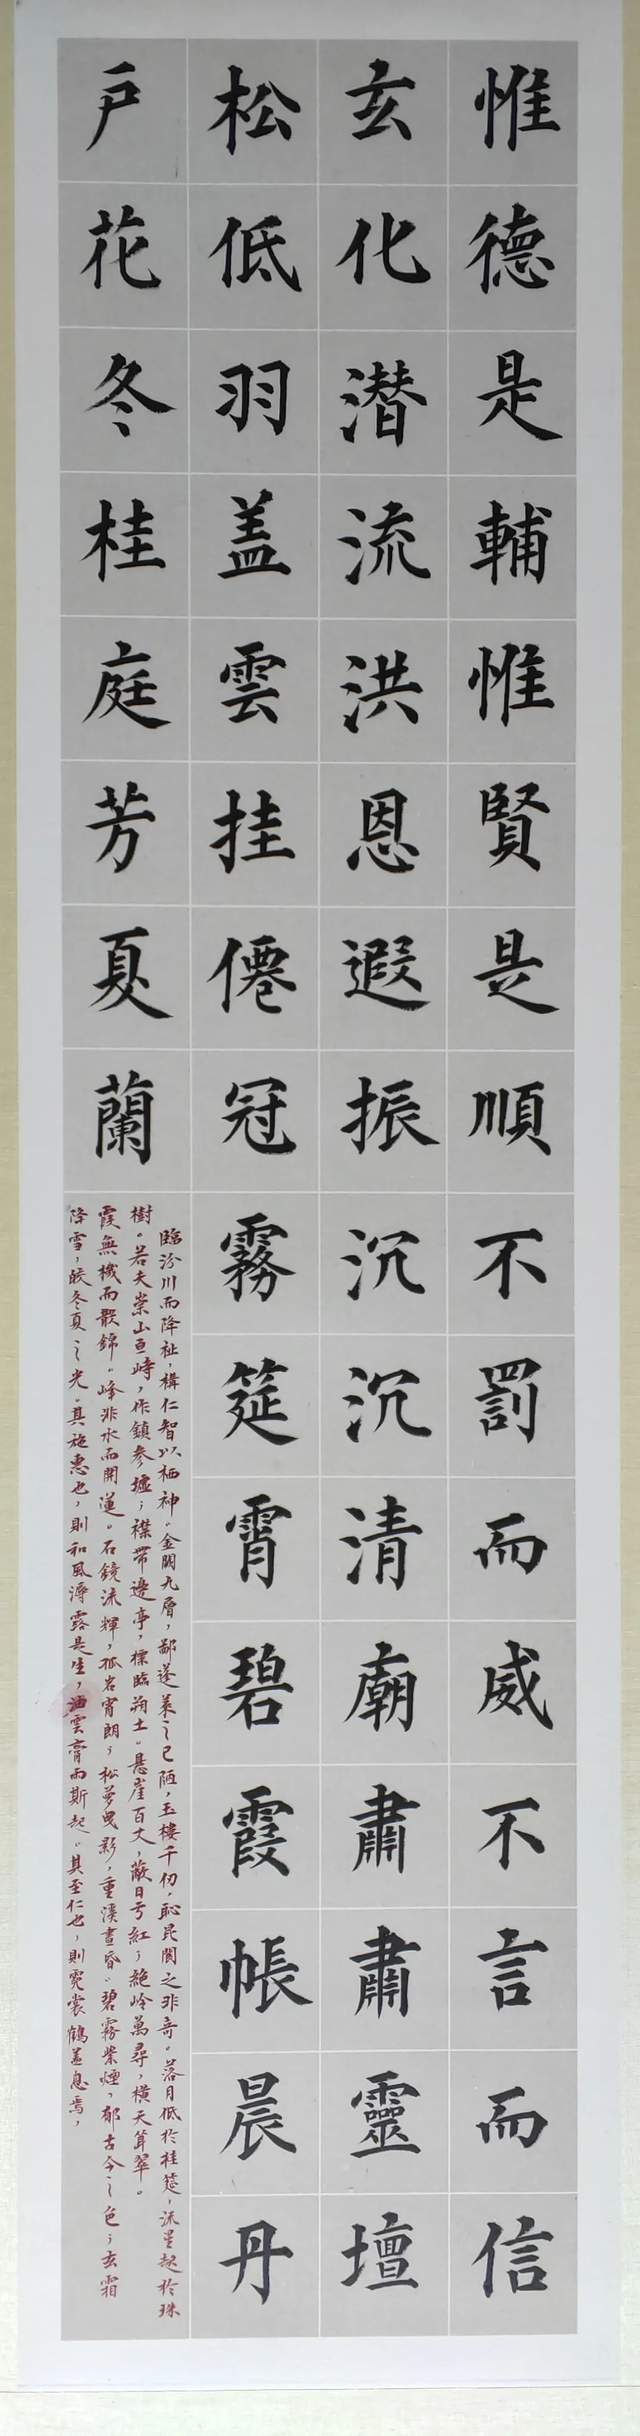 惟德是輔惟賢是順不罰而威不言而信
玄化潜流洪恩遐振沉沉清廟肅肅靈壇
松低羽盖雲挂僊冠霧筵霄碧霞帳晨丹
戶花冬桂庭芳夏蘭
臨汾川而降祉，構仁智以栖神。金闕九層，鄙蓬萊之已陋，玉樓千仞，恥昆閬之非奇。落月低於桂筵，流星起於珠
樹。若夫崇山亘峙，作鎮參墟；襟帶邊亭，標臨朔土。悬崖百丈，蔽日亏紅；絕岭萬尋，橫天聳翠。
霞無機而散錦。峰非水而開蓮。石鏡流輝，孤岩宵朗；松萝曳影，重溪晝昏。碧霧紫煙，郁古今之色；玄霜
降雪，皎冬夏之光。其施惠也，則和風溽露是生，油雲膏雨斯起。其至仁也，則霓裳鶴蓋息焉，